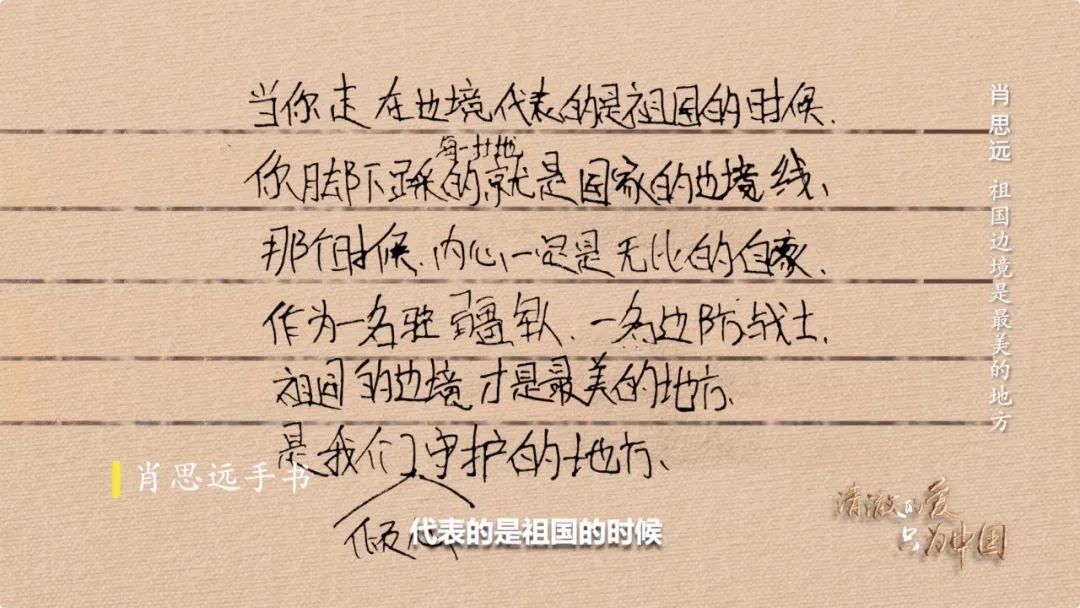 当你走在边境代表的是祖国的时候.
每一寸地
你脚下踩的就是国家的边境线、
那个时候.内心一定是无比的自豪.
作为一名驻疆军人.一名边防战士.
祖国的边境才是最美的地方、
是我们守护的地方、
倾心
肖思远手书
代表的是祖国的时候
肖思远 祖国边境是最美的地方
清澈的爱
只为中国